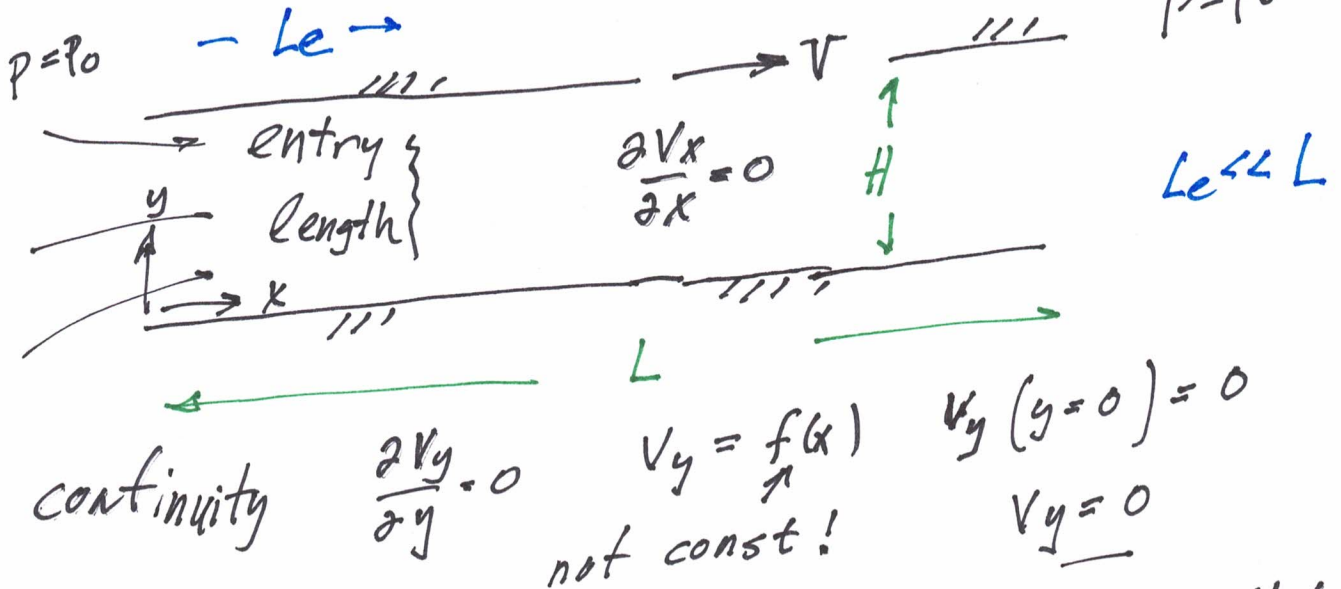 p=p₀ – Le → V
entry
length
∂Vx/∂x = 0
H
Le << L
y
x
L
continuity ∂Vy/∂y = 0 Vy = f(x) Vy (y=0) = 0
not const! Vy = 0